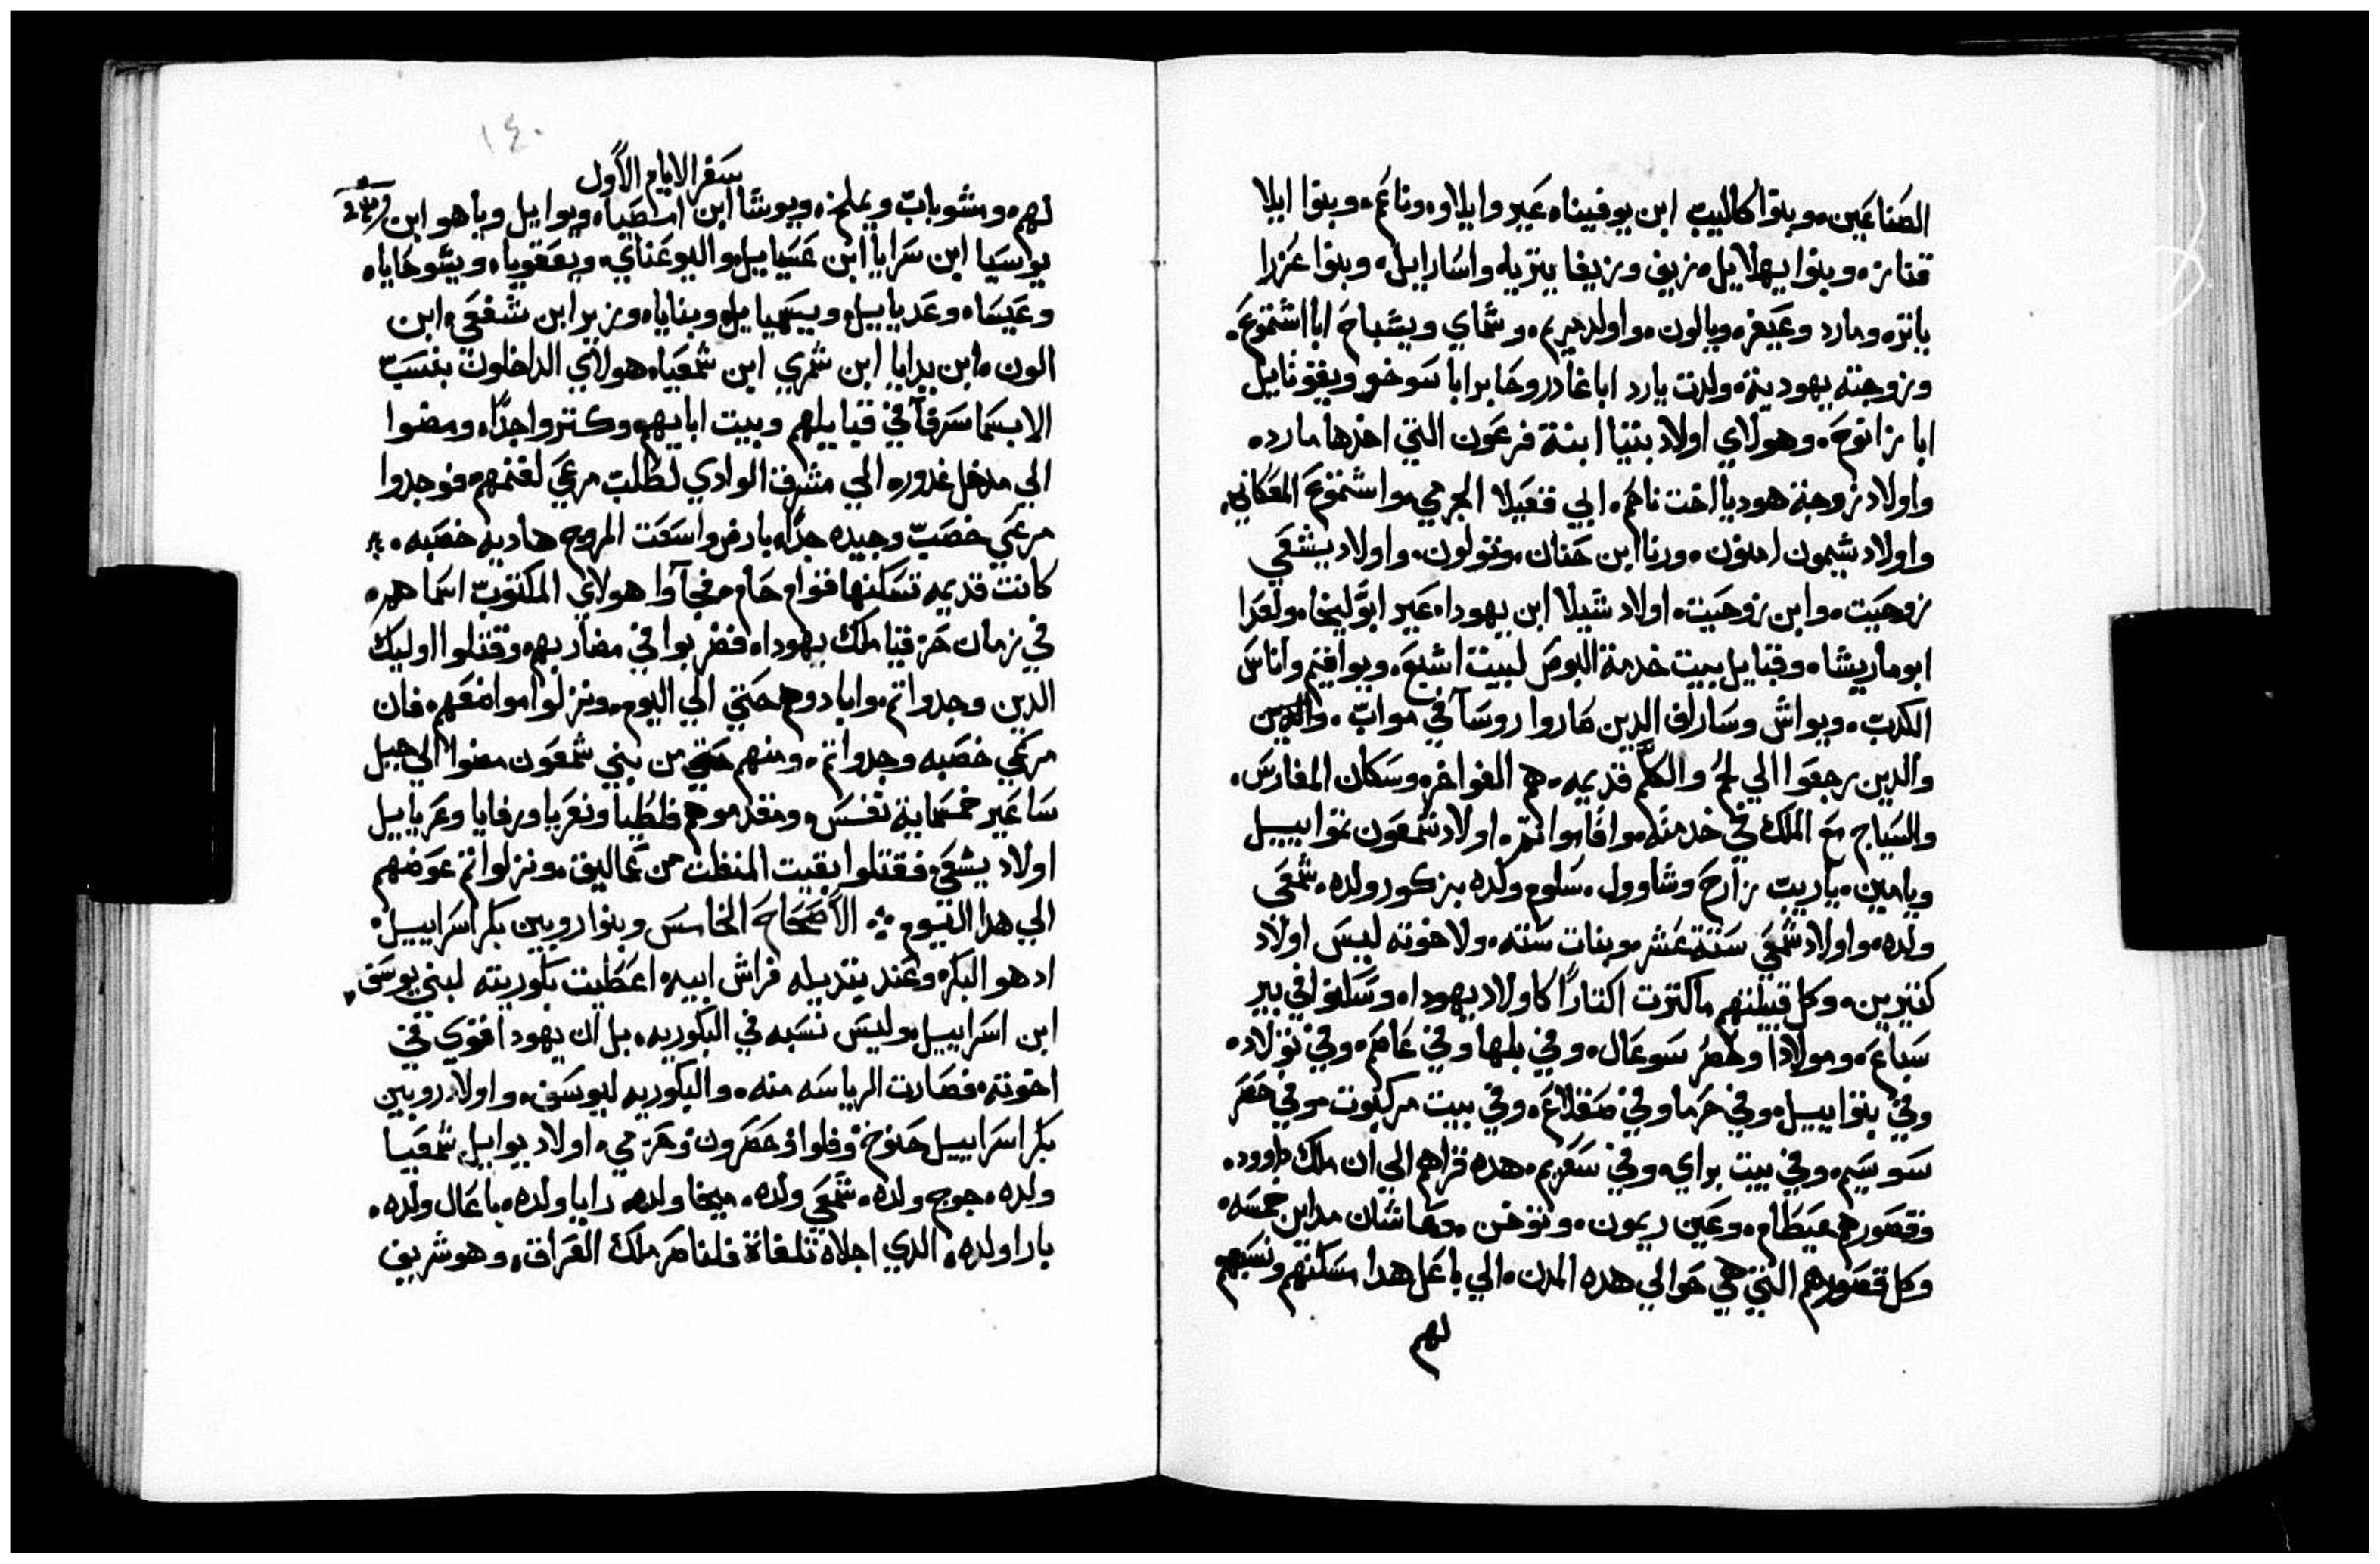 الصناعين. وبنوا كاليب ابن يوفينا. عير وايلا. وناعم. وبنوا ايلا
قناز. وبنوا يهلاليل. زيف وزيفا يتريه واسارايل. وبنوا عزرا
ياتر. ومارد وعيفر. ويالون. واولد مريم. وشماي ويشباح ابا اشتموع.
وزوجته يهودية. ولدت يارد ابا غادر وحابر ابا سوخو ويقوتايل
ابا زانوح. وهولاي اولاد بتيا ابنة فرعون التي اخدها مارد.
واولاد زوجة هوديا اخت ناحم. ابي قعيلا الجرمي. واشتموع المعكاني.
واولاد شيمون امنون. ورنا ابن حنان. وتولون. واولاد يشعي
زوحيت. وابن زوحيت. اولاد شيلا ابن يهودا. عير ابو ليخا. ولعدا
ابو ماريشا. وقبايل بيت خدمة البوص لبيت اشبع. ويواقيم واناس
الكدب. ويواش وساراف الدين صاروا روسآ في مواب.
والدين رجعوا الي لحم والكلم قديمه. هم الفواخر. وسكان المغارس.
والسياج مع الملك في خدمته. واقاموا تم. اولاد شمعون نموابيل
ويامين. ياريب زارح وشاوول. سلوم ولده بزكور ولده. شمعي
ولده. واولاد شمعي ستة عشر. وبنات سته. ولاخوته ليس اولاد
كتيرين. وكل قبيلتهم ماكترت اكتارًا كاولاد يهودا. وسكنوا في بير
سباع. ومولادا وحصر سوعال. وفي بلها وفي عاصم. وفي تولاد.
وفي بتوابيل. وفي حرما وفي صقلاغ. وفي بيت مركبوت. وفي حصر
سوسيم. وفي بيت براي. وفي سعريم. هده قراهم الي ان ملك داوود.
وقصورهم عيطام. وعين ريمون. وتوخن. وعاشان مداين خمسه.
وكل قصورهم التي هي حوالي هده المدن. الي باعل هدا مسكنهم ونسبهم
لهم
١٤٠
سفر الايام الاول
لهم. ومشوباب ويملخ. ويوشا ابن امصيا. ويوايل وياهو ابن
يوسيا ابن سرايا ابن عسيايل. واليوعناي. ويعقوبا. ويشوحايا.
وعيسا. وعديايل. ويسيميايل. وبنايا. وزيزا ابن شفعي. ابن
الون. ابن يدايا ابن شمري ابن شمعيا. هولاي الداخلون بنسب
الاسما سرفآ في قبايلهم وبيت ابايهم. وكتروا جدًا. ومضوا
الي مدخل غدور. الي مشرق الوادي لطلب مرعي لغنمهم. فوجدوا
مرعي خصب وجيده جدًا. بارض واسعت المروج هاديه خصبه.
كانت قديمه تسكنها قوام حام. فجآوا هولاي المكتوب اسماهم.
في زمان حزقيا ملك يهودا. فضربوا في مضاربهم. وقتلوا اوليك
الدين وجدوا تم. وابادوهم حتي الي اليوم. ونزلوا مواضعهم. فان
مرعي خصبه وجدوا تم. ومنهم حتي من بني شمعون مضوا الي جبل
ساعير خمسماية نفس. ومقدموهم فلطيا ونعريا ورفايا وعزيابيل
اولاد يشعي. فقتلوا بقيت المنفلت من عماليق. ونزلوا تم عوضهم
الي هدا اليوم ۞ الاصحاح الخامس وبنوا روبين بكر اسراييل.
اد هو البكر. وعند بتديله فراش ابيه. اعطيت بكوريته لبني يوسف
ابن اسراييل. وليس نسبه في البكوريه. بل ان يهودا قوي في
اخوته. فصارت الرياسه منه. والبكوريه ليوسف. واولاد روبين
بكر اسراييل حنوخ وفلوا وحصرون وحزمي. اولاد يوايل. شمعيا
ولده. جوج ولده. شمعي ولده. ميخا ولده. رايا ولده. باعال ولده.
بارا ولده. الدي اجلاه تلغاة فلناصر ملك العراق. وهو شريف